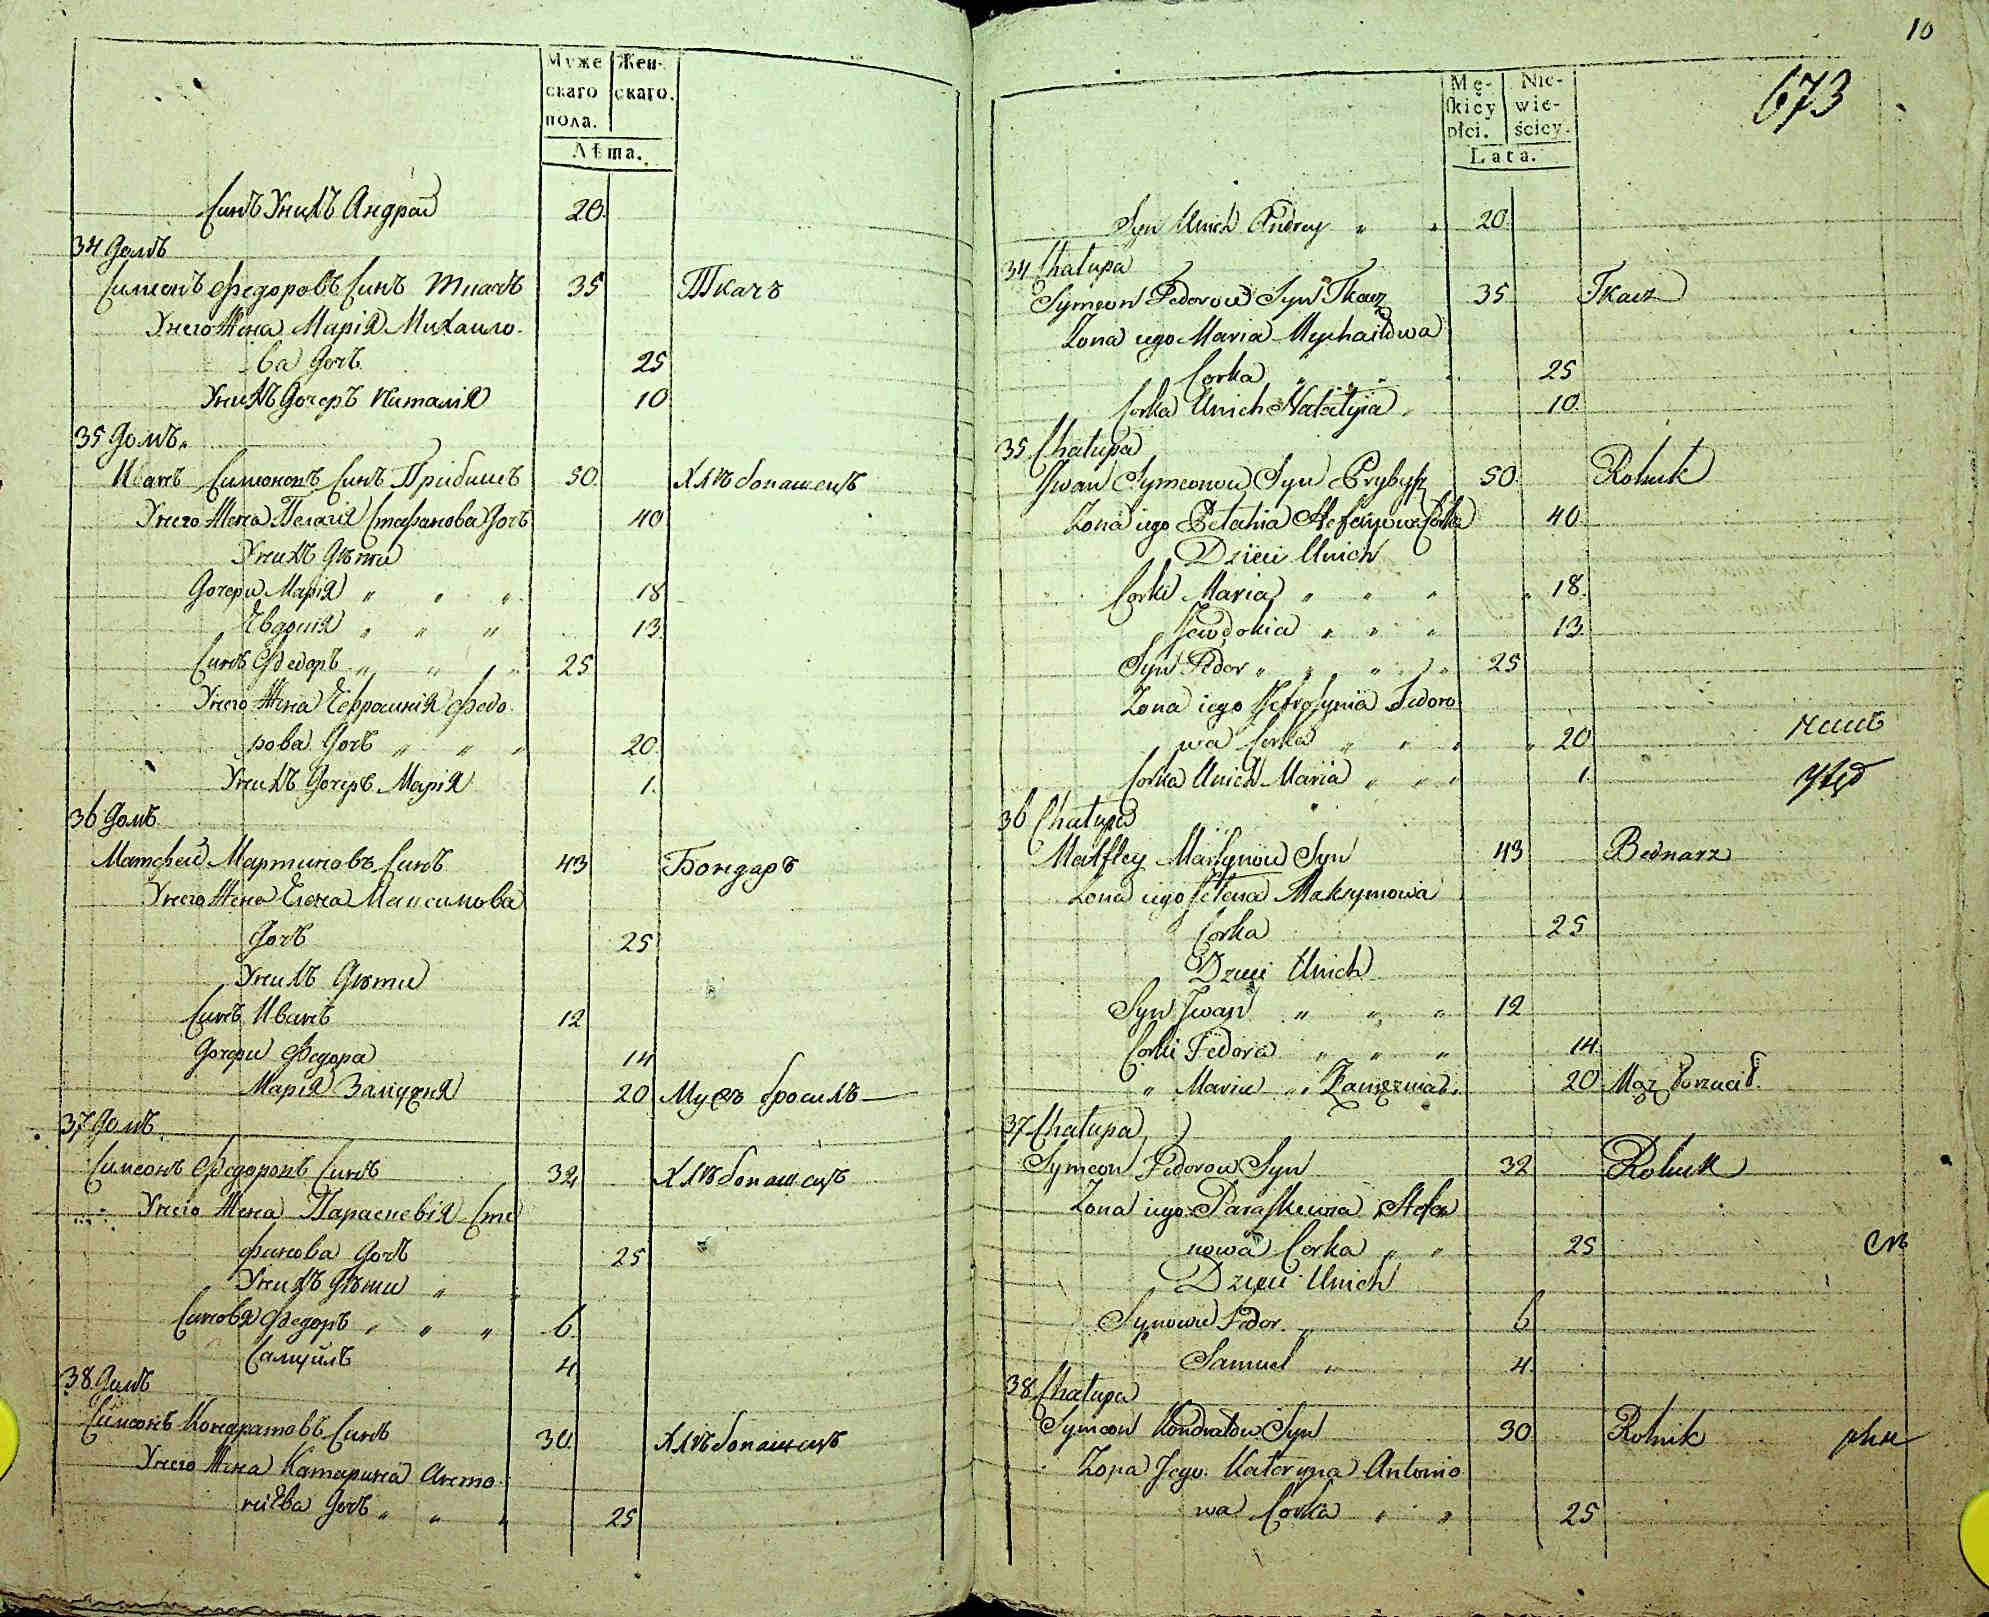 Муже
скаго
пола.
Жен-
скаго.
Лѣта.
Синъ Унихъ Андрей 20.
34 Домъ
Симеонъ Федоровъ Синъ Ткачъ 35 Ткачъ
Унего Жена Марія Михаило-
ва Дочъ 25
Унихъ Дочеръ Наталія 10
35 Домъ.
Иванъ Симоновъ Синъ Прибишъ 50 Хлѣбопашецъ
Унего Жена Пелагія Стефанова Дочъ 40
Унихъ Дѣти
Дочери Марія „ „ „ 18
Евдокія „ „ „ 13.
Синъ Федоръ „ „ „ 25
Унего Жена Ефросинія Федо-
рова Дочъ „ „ „ 20.
Унихъ Дочеръ Марія 1.
36 Домъ
Матфей Мартиновъ Синъ 43 Бондаръ
Унего Жена Елена Максимова
Дочъ 25
Унихъ Дѣти
Синъ Иванъ 12
Дочери Федора 14
Марія Замужня 20 Мужъ бросилъ
37 Домъ.
Симеонъ Федоровъ Синъ 32 Хлѣбопашецъ
Унего Жена Параскевія Сте
фанова Дочъ 25
Унихъ Дѣти „ „
Синовя Федоръ „ „ „ 6.
Самуилъ 4
38 Домъ
Симеонъ Кондратовъ Синъ 30. Хлѣбопашецъ
Унего Жена Катарина Анто-
ніева Дочъ „ „ „ 25
10
673
Mę-
skiey
płci.
Nie-
wie-
ściey.
Lata.
Syn Unich Andrey „ „ 20
34 Chałupa
Symeon Fedorow Syn Tkacz 35 Tkacz
Zona iego Maria Mychaiłowa
Corka „ „ „ 25
Corka Unich Natalyia 10.
35 Chałupa
Jwan Symeonow Syn Prybysz 50. Rolnik
Zona iego Pelahia Stefanowa Corka 40
Dzieci Unich
Corki Maria „ „ „ 18.
Jewdokia „ „ „ 13.
Syn Fedor „ „ „ „ 25
Zona iego Jefrosynia Fedoro
wa Corka „ „ „ 20
Corka Unich Maria „ „ „ 1.
36 Chałupa
Matfiey Martynow Syn 43 Bednarz
Zona iego Jelena Maksymowa
Corka 25
Dzieci Unich
Syn Jwan „ „ „ 12
Corki Fedora „ „ „ 14.
„ Maria „ Zamęznia 20 Mąż porzucił.
37 Chałupa
Symeon Fedorow Syn 32 Rolnik
Zona iego Paraskewia Stefa
nowa Corka „ „ 25
Съ
Dzieci Unich
Synowie Fedor „ 6
Samuel „ 4.
38 Chałupa
Symeon Kondratow Syn 30 Rolnik
Zona Jego Kateryna Antonio
wa Corka „ „ 25